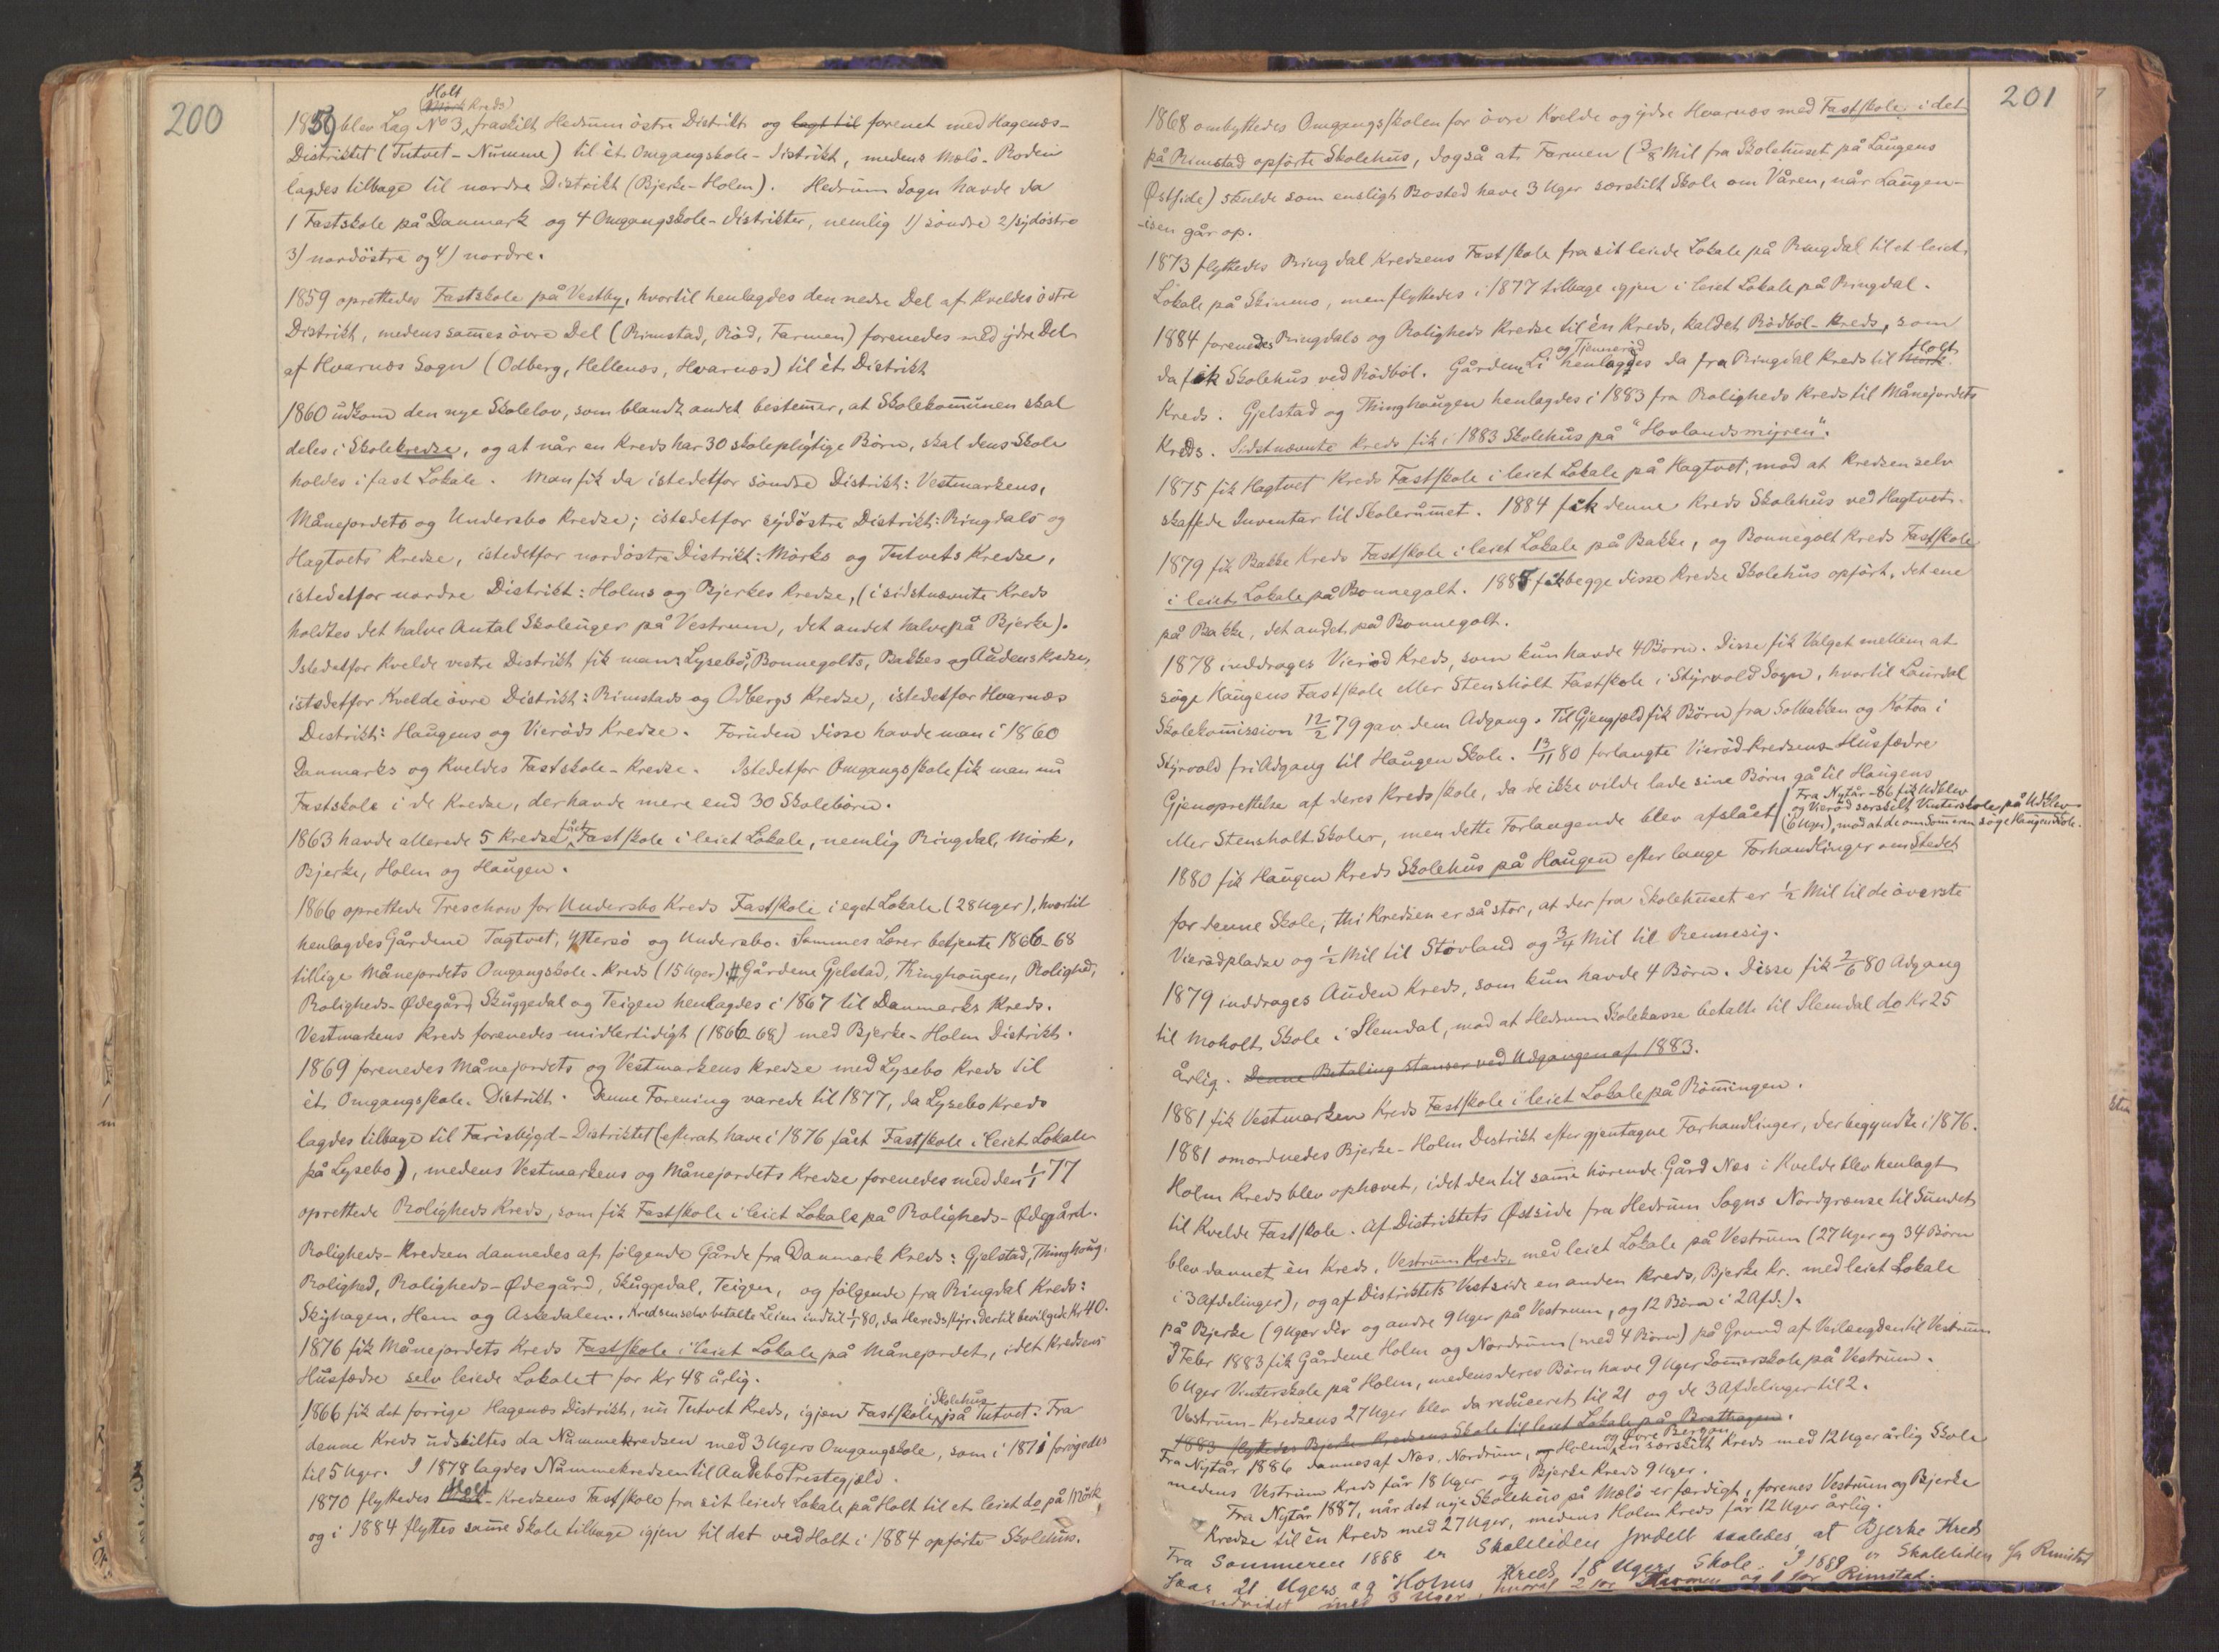 200
Holt
(Mörk Kreds)
1859 blev Lag No 3, fraskilt Hedrum östre Distrikt og lagt til forenet med Hagenæs-
Distriktet (Tutvet-Numme) til ét Omgangskole-Distrikt, medens Mælö-Roden
lagdes tilbage til nordre Distrikt (Bjerke-Holm). Hedrum Sogn havde da
1 Fastskole på Danmark og 4 Omgangskole-Distrikter, nemlig 1/ söndre 2/ sydöstre
3/ nordöstre og 4/ nordre.
1859 oprettedes Fastskole på Vestby, hvortil henlagdes den nedre Del af Kveldes östre
Distrikt, medens sammes övre Del (Rimstad, Röd, Farmen) forenedes med ydre Del
af Hvarnæs Sogn (Odberg, Hellenæs, Hvarnæs) til ét Distrikt
1860 udkom den nye Skolelov, som blandt andet bestemer, at Skolekommunen skal
deles i Skolekredse, og at når en Kreds har 30 skolepligtige Börn, skal dens Skole
holdes i fast Lokale. Man fik da istedetfor söndre Distrikt: Vestmarkens,
Månejordets og Undersbo Kredse; istedetfor sydöstre Distrikt: Ringdals og
Hagtvets Kredse, istedetfor nordöstre Distrikt: Mörks og Tutvets Kredse,
istedetfor nordre Distrikt: Holms og Bjerkes Kredse, (i sidstnævnte Kreds
holdtes det halve Antal Skoleuger på Vestrum, det andet halve på Bjerke).
Istedetfor Kvelde vestre Distrikt fik man: Lysebös, Bonnegolts, Bakkes og Audens Kredse,
istedetfor Kvelde övre Distrikt: Rimstads og Odbergs Kredse, istedetfor Hvarnæs
Distrikt: Haugens og Vieröds Kredse. Foruden disse havde man i 1860
Danmarks og Kveldes Fastskole-Kredse. Istedetfor Omgangsskole fik man nu
Fastskole i de Kredse, der havde mere end 30 Skolebörn.
1863 havde allerede 5 Kredse fået Fastskole i leiet Lokale, nemlig Ringdal, Mörk,
Bjerke, Holm og Haugen.
1866 oprettede Treschow for Undersbo Kreds Fastskole i eget Lokale (28 Uger), hvortil
henlagdes Gårdene Tagtvet, Yttersö og Undersbo. Sammes Lærer betjente 1866-68
tillige Månejordets Omgangskole-Kreds (15 Uger). Gårdene Gjelstad, Thinghougen, Rolighed,
Roligheds-Ødegård, Skuggedal og Teigen henlagdes i 1867 til Danmarks Kreds.
Vestmarkens Kreds forenedes midlertidigt (1866-68) med Bjerke-Holm Distrikt.
1869 forenedes Månejordets og Vestmarkens Kredse med Lysebo Kreds til
ét Omgangsskole-Distrikt. Denne Forening varede til 1877, da Lysebo Kreds
lagdes tilbage til Farisbygd-Distriktet (efterat have i 1876 fået Fastskole i leiet Lokale
på Lysebo), medens Vestmarkens og Månejordets Kredse forenedes med den 1/1 77
oprettede Roligheds Kreds, som fik Fastskole i leiet Lokale på Roligheds-Ødegård.
Roligheds-Kredsen dannedes af følgende Gårde fra Danmark Kreds: Gjelstad, Thinghoug,
Rolighed, Roligheds-Ødegård, Skuggedal, Teigen, og fölgende fra Ringdal Kreds:
Skyhagen, Hem og Askedalen. Kredsen selv betalte Leien indtil 1/1 80, da Heredsstyr. dertil bevilgede Kr 40.
1876 fik Månejordets Kreds Fastskole i leiet Lokale på Månejordet, idet Kredsens
Husfædre selv leiede Lokalet for Kr 48 årlig.
1866 fik det forrige Hagenæs Distrikt, nu Tutvet Kreds, igjen Fastskole i Skolehus på Tutvet. Fra
denne Kreds udskiltes da Nummekredsen med 3 Ugers Omgangskole, som i 1871 forögedes
til 5 Uger. I 1878 lagdes Nummekredsen til Andebo Prestegjæld.
1870 flyttedes Holt-Kredsens Fastskole fra sit leiede Lokale på Holt til et leiet do på Mörk,
og i 1884 flyttes samme Skole tilbage igjen til det ved Holt i 1884 opförte Skolehus.
201
1868 ombyttedes Omgangsskolen for övre Kvelde og ydre Hvarnæs med Fastskole i det
på Rimstad opförte Skolehus, dogså at Farmen (3/8 Mil fra Skolehuset på Laugens
Østside) skulde som ensligt Bosted have 3 Uger særskilt Skole om Våren, når Laugen-
isen går op.
1873 flyttedes Ringdal Kredsens Fastskole fra sit leiede Lokale på Ringdal til et leiet
Lokale på Skinmo, men flyttedes i 1877 tilbage igjen i leiet Lokale på Ringdal.
1884 forenedes Ringdals og Roligheds Kredse til én Kreds, kaldet Rödböl-Kreds, som
da fik Skolehus ved Rödböl. Gårdene Li og Tjenneröd henlagdes da fra Ringdal Kreds til Mörk Holt
Kreds. Gjelstad og Thinghougen henlagdes i 1883 fra Roligheds Kreds til Månejordets
Kreds. Sidstnævnte Kreds fik i 1883 Skolehus på "Hovlandsmyren".
1875 fik Hagtvet Kreds Fastskole i leiet Lokale på Hagtvet, mod at Kredsen selv
skaffede Inventar til Skolerummet. 1884 fik denne Kreds Skolehus ved Hagtvet.
1879 fik Bakke Kreds Fastskole i leiet Lokale på Bakke, og Bonnegolt Kreds Fastskole
i leiet Lokale på Bonnegolt. 1885 fik begge disse Kredse Skolehus opfört, det ene
på Bakke, det andet på Bonnegolt.
1878 inddrages Vieröd Kreds, som kun havde 4 Börn. Disse fik Valget mellem at
söge Haugens Fastskole eller Stensholt Fastskole i Styrvold Sogn, hvortil Laurdal
Skolekommission 12/2 79 gav dem Adgang. Til Gjengjæld fik Börn fra Solbakken og Kotoa i
Styrvold fri Adgang til Haugen Skole. 13/11 80 forlangte Vieröd Kredsens Husfædre
Gjenoprettelse af deres Kredsskole, da de ikke vilde lade sine Börn gå til Haugens
eller Stensholt Skoler, men dette Forlangende blev afslået
Fra Nytår -86 fik Udklev
og Vieröd særskilt Vinterskole på Udklev
(6 Uger), mod at de om Somren söge Haugenskole.
1880 fik Haugen Kreds Skolehus på Haugen efter lange Forhandlinger om Stedet
for denne Skole, thi Kredsen er så stor, at der fra Skolehuset er 1/2 Mil til de överste
Vierödpladse og 1/2 Mil til Stövland og 3/4 Mil til Rennesig.
1879 inddrages Auden Kreds, som kun havde 4 Börn. Disse fik 2/6 80 Adgang
til Moholt Skole i Slemdal, mod at Hedrum Skolekasse betalte til Slemdal do Kr 25
årlig. Denne Betaling stanser ved Udgangen af 1883.
1881 fik Vestmarken Kreds Fastskole i leiet Lokale på Römingen.
1881 omordnedes Bjerke-Holm Distrikt efter gjentagne Forhandlinger, der begyndte i 1876.
Holm Kreds blev ophævet, idet den til samme hörende Gård Næs i Kvelde blev henlagt
til Kvelde Fastskole. Af Distriktets Østside fra Hedrum Sogns Nordgrænse til Sundet
blev dannet én Kreds, Vestrum Kreds, med leiet Lokale på Vestrum (27 Uger og 34 Börn
i 3 Afdelinger), og af Distriktets Vestside en anden Kreds, Bjerke Kr. med leiet Lokale
på Bjerke (9 Uger dér og andre 9 Uger på Vestrum, og 12 Börn i 2 Afd.).
I Febr 1883 fik Gårdene Holm og Nordrum (med 4 Börn) på Grund af Veilængden til Vestrum
6 Uger Vinterskole på Holm, medens deres Börn have 9 Uger Sommerskole på Vestrum.
Vestrum-Kredsens 27 Uger blev da reduceret til 21 og de 3 Afdelinger til 2.
1883 flyttedes Bjerke-Kredsens Skole til leiet Lokale på Bratthagen.
Fra Nytår 1886 dannes af Næs, Nordrum, og Holm og Övre Bergan en særskilt Kreds med 12 Uger årlig Skole
medens Vestrum Kreds får 18 Uger og Bjerke Kreds 9 Uger.
Fra Nytår 1887, når det nye Skolehus på Mælö er færdigt, forenes Vestrum og Bjerke
Kredse til én Kreds med 27 Uger, medens Holm Kreds får 12 Uger årlig.
Fra Sommeren 1888 er Skoletiden fordelt saaledes, at Bjerke Kreds
faar 21 Ugers og Holms Kreds 18 Ugers Skole. I 1889 er Skoletiden for Rimstad
udvidet med 3 Uger, hvoraf 2 for Farmen og 1 for Rimstad.